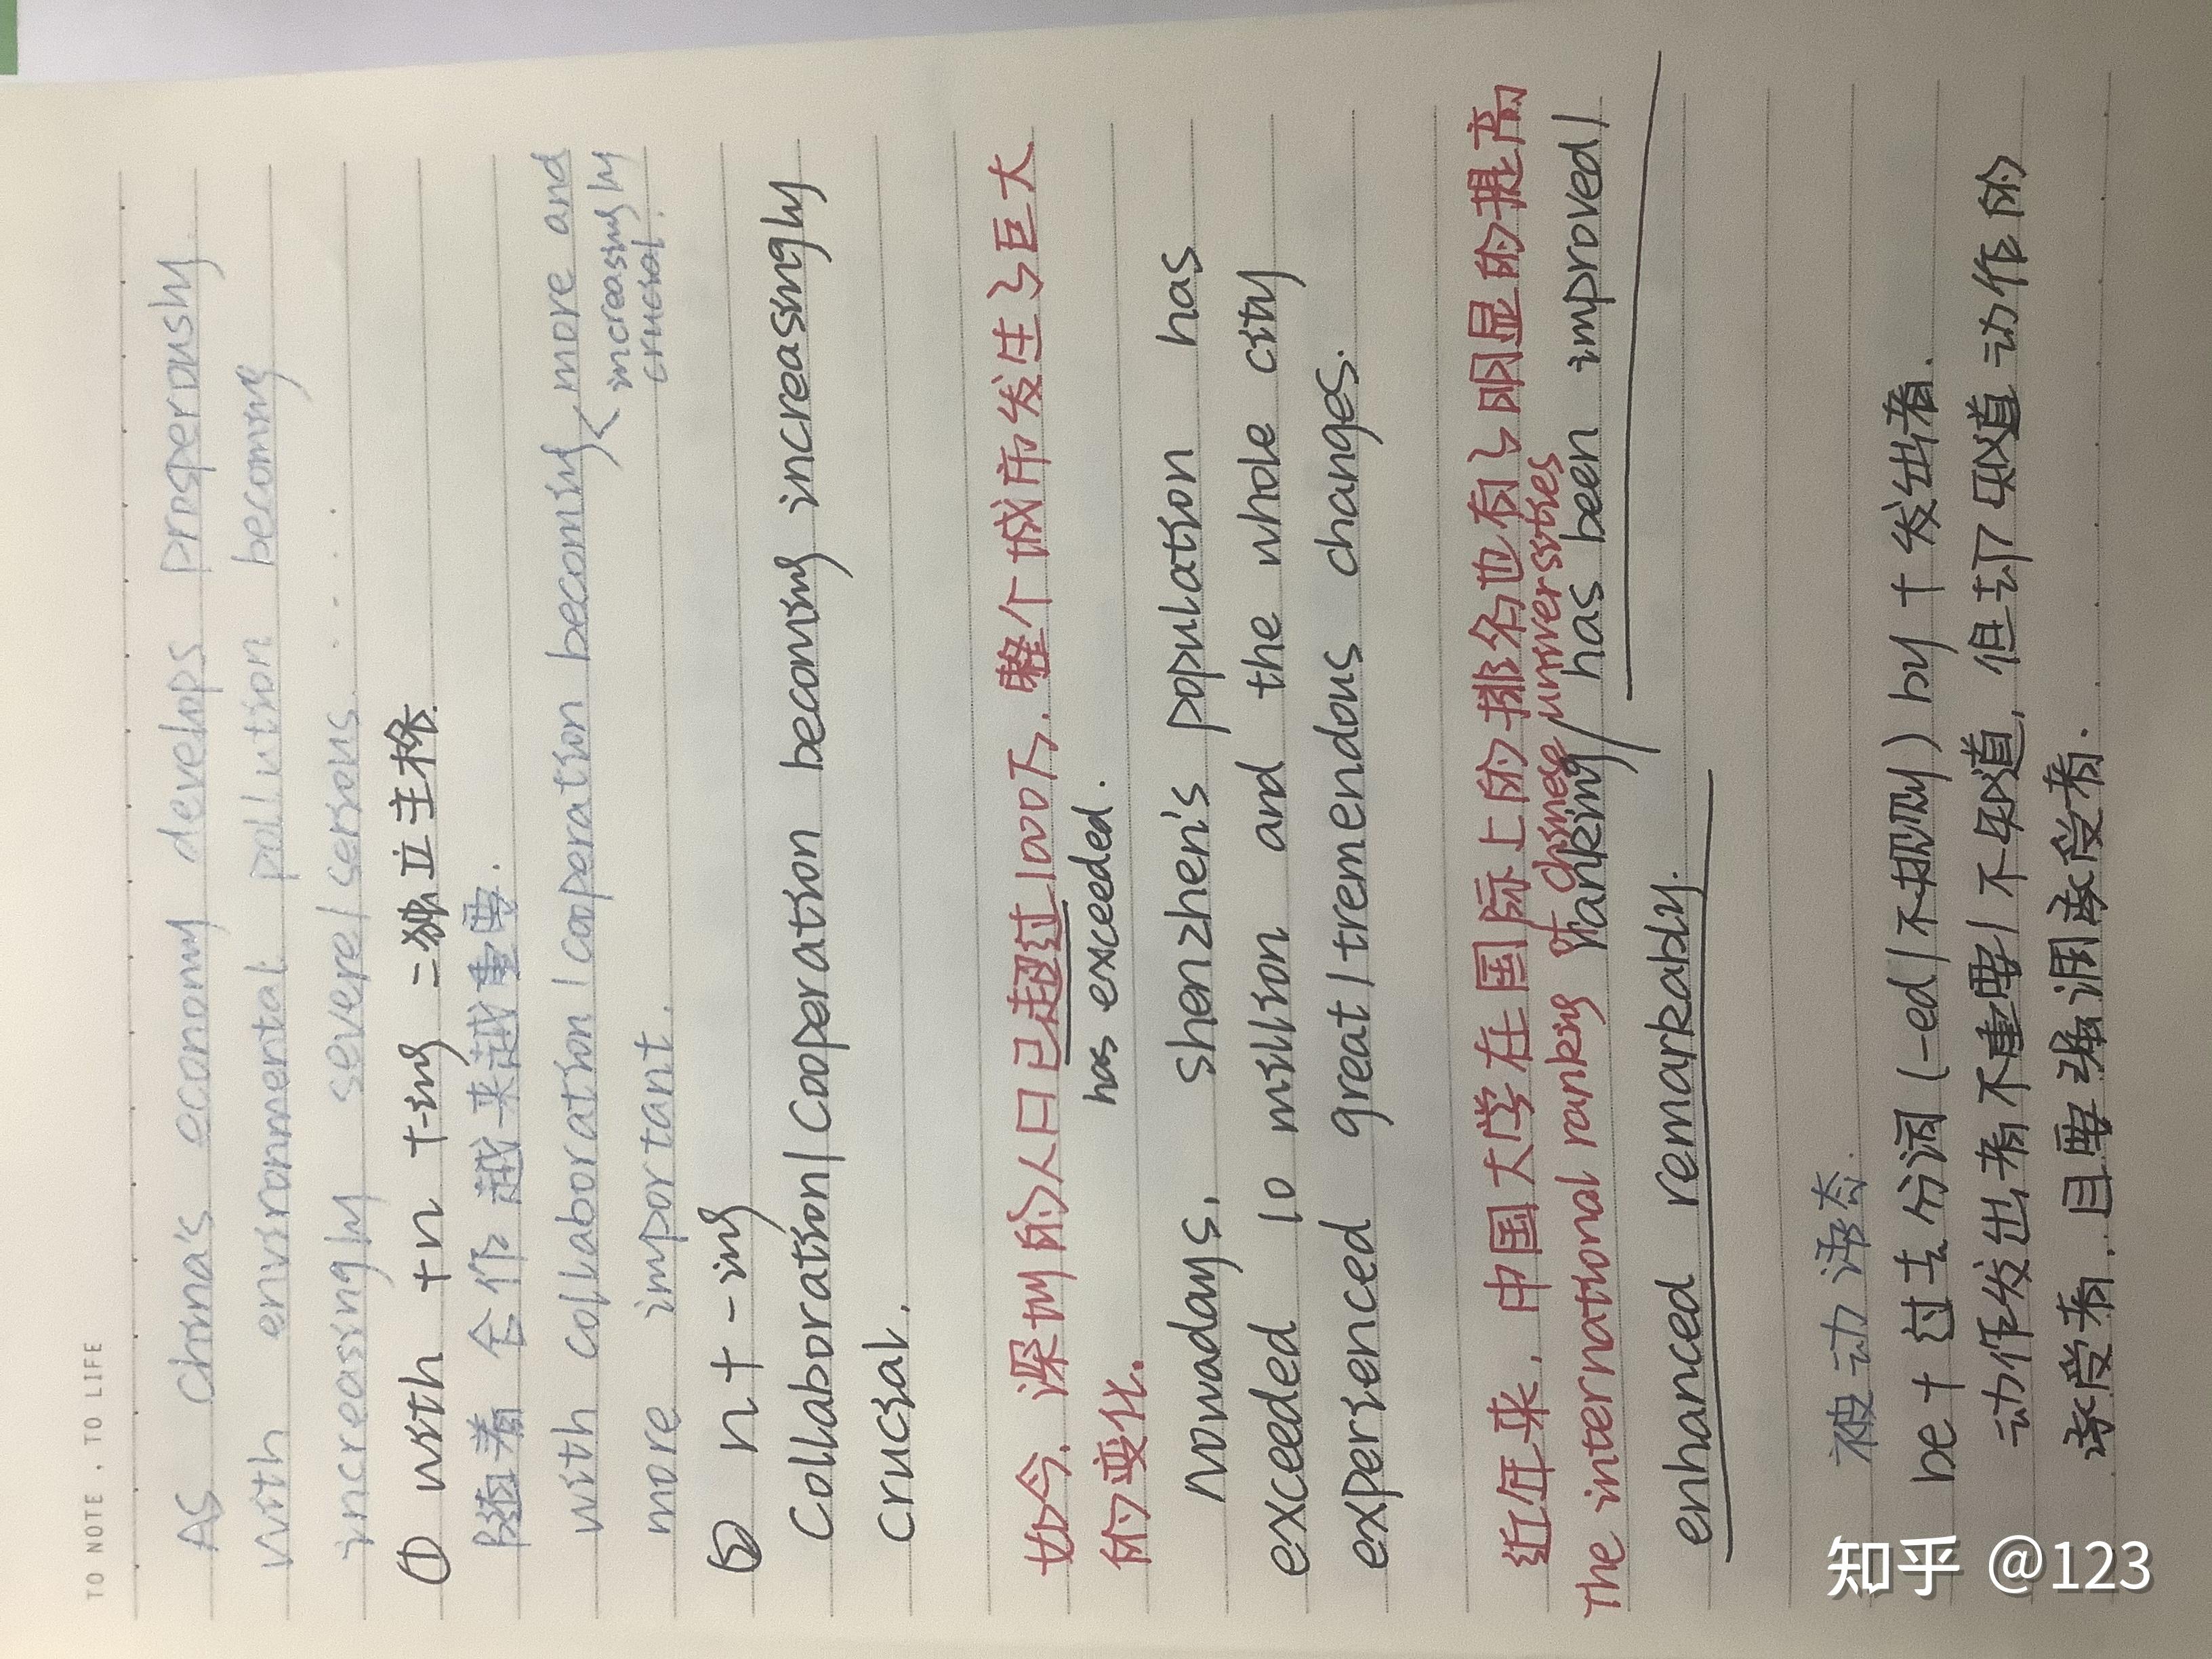 TO NOTE . TO LIFE
As China's economy develops prosperously.
with environmental pollution becoming
increasingly severe/serious. . . . .
① with +n +-ing =独立主格.
随着合作越来越重要.
with collaboration/cooperation becoming < more and
increasingly
crucial.
more important.
② n+-ing
Collaboration/Cooperation becoming increasingly
crucial.
如今,深圳的人口已超过1000万,整个城市发生了巨大
has exceeded.
的变化.
Nowadays, shenzhen's population has
exceeded 10 million and the whole city
experienced great/tremendous changes.
近年来,中国大学在国际上的排名也有了明显的提高
The international ranking of chinese universities
ranking/has been improved/
enhanced remarkably.
被动语态.
be+过去分词(-ed/不规则)by+发出者.
动作发出者不重要/不知道,但却知道动作的
承受者,且要强调承受者.
知乎 @123